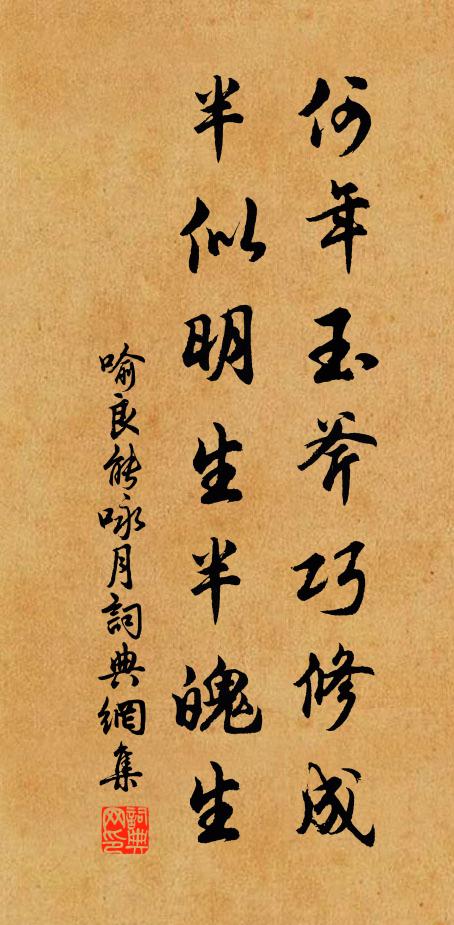 何年玉斧巧修成
半似明生半魄生
喻良能咏月詞典網集
詞典網印